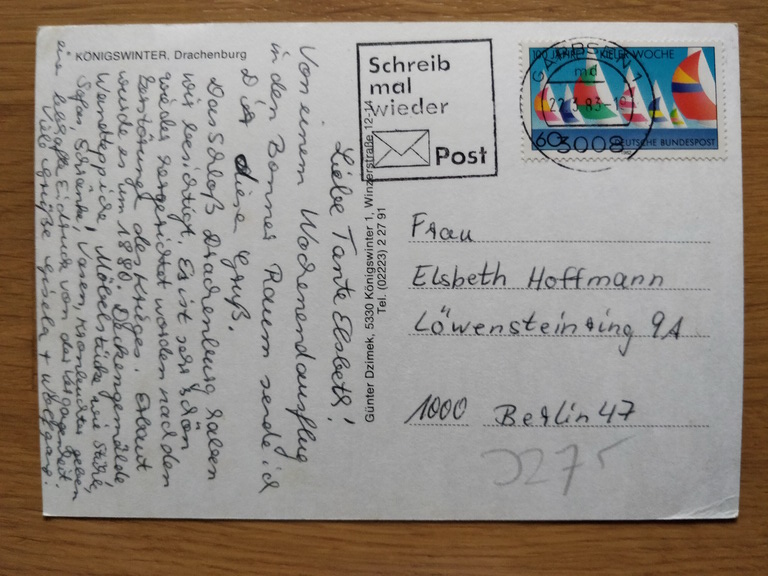 KÖNIGSWINTER, Drachenburg
Liebe Tante Elsbeth!
Von einem Wochenendausflug
in den Bonner Raum sende ich
Dir diesen Gruß.
Das Schloß Drachenburg haben
wir besichtigt. Es ist sehr schön
wieder hergerichtet worden nach den
Zerstörung des Krieges. Erbaut
wurde es um 1880. Deckengemälde
Wandteppiche, Möbelstücke wie Stühle,
Sofas, Schränke, Vasen, Kronleuchter geben
eine Eidruck von der Vergangenheit.
Viele Grüße Gisela + Wolfgang.
Günter Dzimek, 5330 Königswinter 1, Winzerstraße 12-14
Tel. (02223) 2 27 91
Schreib
mal
wieder
Post
100 JAHRE KIELER WOCHE
60
DEUTSCHE BUNDESPOST
GARBSEN 1
md
22.3.83-1
3008
Frau
Elsbeth Hoffmann
Löwensteinring 9A
1000 Berlin 47
J275